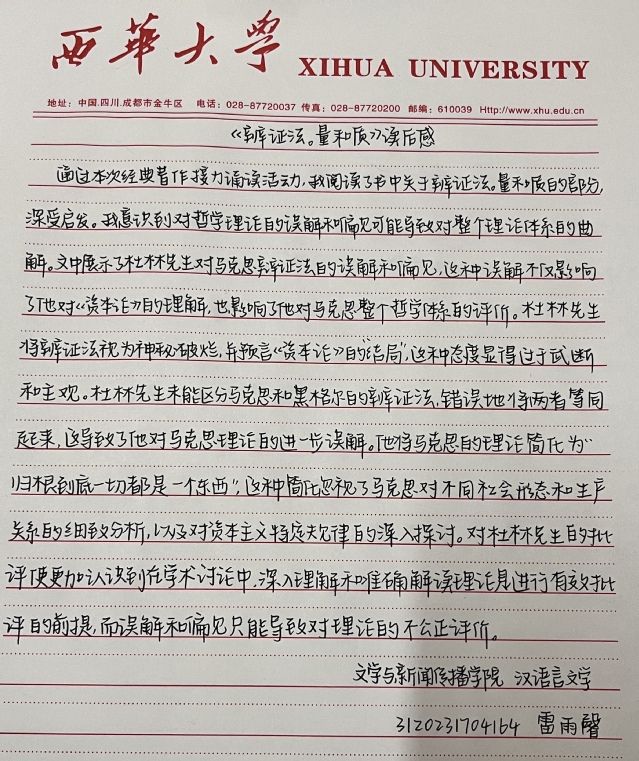 西華大學 XIHUA UNIVERSITY
地址：中国.四川.成都市金牛区 电话：028-87720037 传真：028-87720200 邮编：610039 Http://www.xhu.edu.cn
《辩证法。量和质》读后感
通过本次经典著作接力诵读活动，我阅读了书中关于辩证法。量和质的部分，
深受启发。我意识到对哲学理论的误解和偏见可能导致对整个理论体系的曲
解。文中展示了杜林先生对马克思辩证法的误解和偏见，这种误解不仅影响
了他对《资本论》的理解，也影响了他对马克思整个哲学体系的评价。杜林先生
将辩证法视为神秘破烂，并预言《资本论》的"结局"，这种态度显得过于武断
和主观。杜林先生未能区分马克思和黑格尔的辩证法，错误地将两者等同
起来，这导致了他对马克思理论的进一步误解。他将马克思的理论简化为"
归根到底一切都是一个东西"，这种简化忽视了马克思对不同社会形态和生产
关系的细致分析，以及对资本主义特定规律的深入探讨。对杜林先生的批
评使更加认识到在学术讨论中，深入理解和准确解读理论是进行有效批
评的前提，而误解和偏见只能导致对理论的不公正评价。
文学与新闻传播学院 汉语言文学
3120231704164 雷雨馨